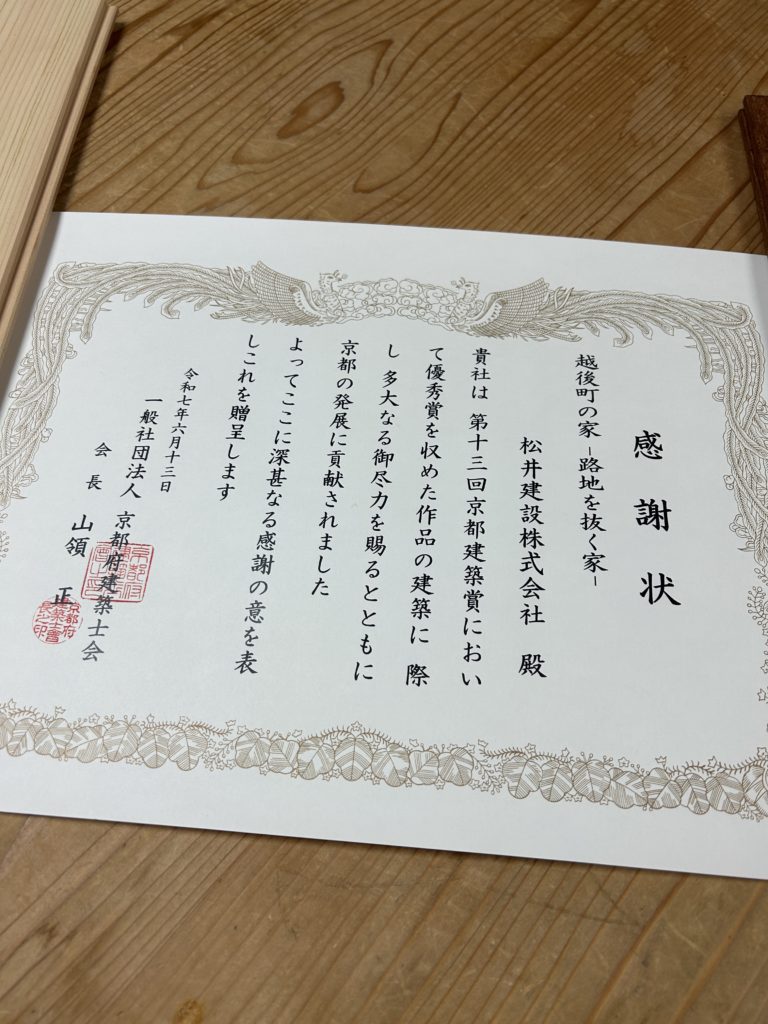 感謝状
越後町の家 –路地を抜く家–
松井建設株式会社 殿
貴社は 第十三回京都建築賞におい
て優秀賞を収めた作品の建築に 際
し 多大なる御尽力を賜るとともに
京都の発展に貢献されました
よってここに深甚なる感謝の意を表
しこれを贈呈します
令和七年六月十三日
一般社団法人 京都府建築士会
会長 山領 正